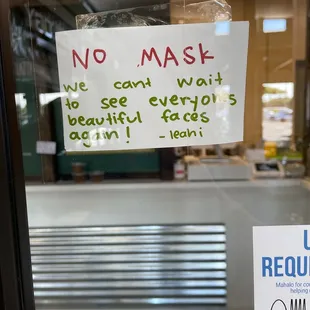 NO MASK
we cant wait
to see everyones
beautiful faces
again! - leahi
REQU
Mahalo for co
helping